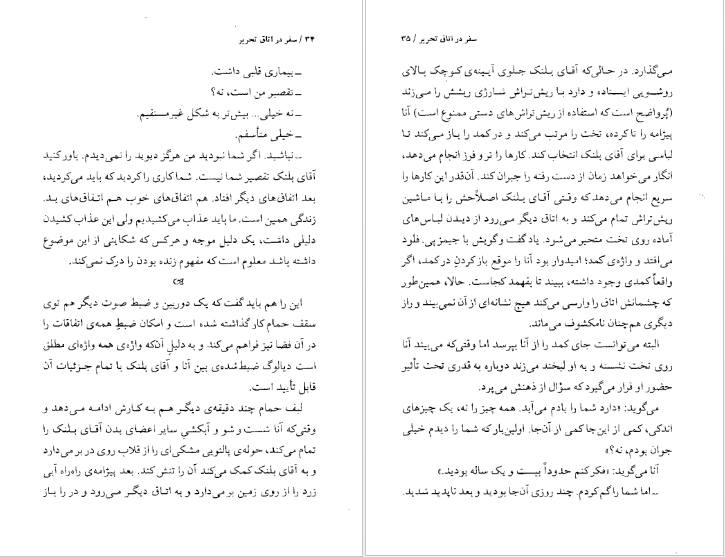 ۳۴ / سفر در اتاق تحریر
ـ بیماری قلبی داشت.
ـ تقصیر من است، نه؟
ـ نه خیلی... بیش‌تر به شکل غیرمستقیم.
ـ خیلی متأسفم.
ـ نباشید. اگر شما نبودید من هرگز دیوید را نمی‌دیدم. باور کنید
آقای بلنک تقصیر شما نیست. شما کاری را کردید که باید می‌کردید،
بعد اتفاق‌های دیگر افتاد. هم اتفاق‌های خوب هم اتفاق‌های بد.
زندگی همین است. ما باید عذاب می‌کشیدیم ولی این عذاب کشیدن
دلیلی داشت، یک دلیل موجه و هرکس که شکایتی از این موضوع
داشته باشد معلوم است که مفهوم زنده بودن را درک نمی‌کند.
این را هم باید گفت که یک دوربین و ضبط صوت دیگر هم توی
سقف حمام کار گذاشته شده است و امکان ضبطِ همه‌ی اتفاقات را
در آن فضا نیز فراهم می‌کند. و به دلیلِ آن‌که واژه‌ی همه واژه‌ای مطلق
است دیالوگ ضبط‌شده‌ی بین آنا و آقای بلنک با تمام جزئیات آن
قابل تأیید است.
لیف حمام چند دقیقه‌ی دیگر هم به کارش ادامه می‌دهد و
وقتی‌که آنا شست و شو و آبکشیِ سایر اعضای بدن آقای بلنک را
تمام می‌کند، حوله‌ی پالتویی مشکی‌ای را از قلاب روی در بر می‌دارد
و به آقای بلنک کمک می‌کند آن را تنش کند. بعد پیژامه‌ی راه‌راه آبی
زرد را از روی زمین بر می‌دارد و به اتاق دیگر می‌رود و در را باز
سفر در اتاق تحریر / ۳۵
می‌گذارد. در حالی‌که آقای بلنک جلوی آیینه‌ی کوچک بالای
روشویی ایستاده، و دارد با ریش‌تراش شارژی ریشش را می‌زند
(پُرواضح است که استفاده از ریش‌تراش‌های دستی ممنوع است) آنا
پیژامه را تا کرده، تخت را مرتب می‌کند و در کمد را باز می‌کند تا
لباسی برای آقای بلنک انتخاب کند. کارها را تر و فرز انجام می‌دهد،
انگار می‌خواهد زمان از دست رفته را جبران کند. آن‌قدر این کارها را
سریع انجام می‌دهد که وقتی آقای بلنک اصلاحش را با ماشین
ریش‌تراش تمام می‌کند و به اتاق دیگر می‌رود از دیدن لباس‌های
آماده روی تخت متحیر می‌شود. یاد گفت وگویش با جیمز پی. فلود
می‌افتد و واژه‌ی کمد؛ امیدوار بود آنا را موقع باز کردنِ در کمد، اگر
واقعاً کمدی وجود داشته، ببیند تا بفهمد کجاست. حالا، همین‌طور
که چشمانش اتاق را وارسی می‌کند هیچ نشانه‌ای از آن نمی‌بیند و راز
دیگری هم‌چنان نامکشوف می‌ماند.
البته می‌توانست جای کمد را از آنا بپرسد اما وقتی‌که می‌بیند آنا
روی تخت نشسته و به او لبخند می‌زند دوباره به قدری تحت تأثیر
حضور او قرار می‌گیرد که سؤال از ذهنش می‌پرد.
می‌گوید: «دارد شما را یادم می‌آید. همه چیز را نه، یک چیزهای
اندکی، کمی از این‌جا کمی از آن‌جا. اولین‌بار که شما را دیدم خیلی
جوان بودم، نه؟»
آنا می‌گوید: «فکر کنم حدوداً بیست و یک ساله بودید.»
ـ اما شما را گم کردم. چند روزی آن‌جا بودید و بعد ناپدید شدید.